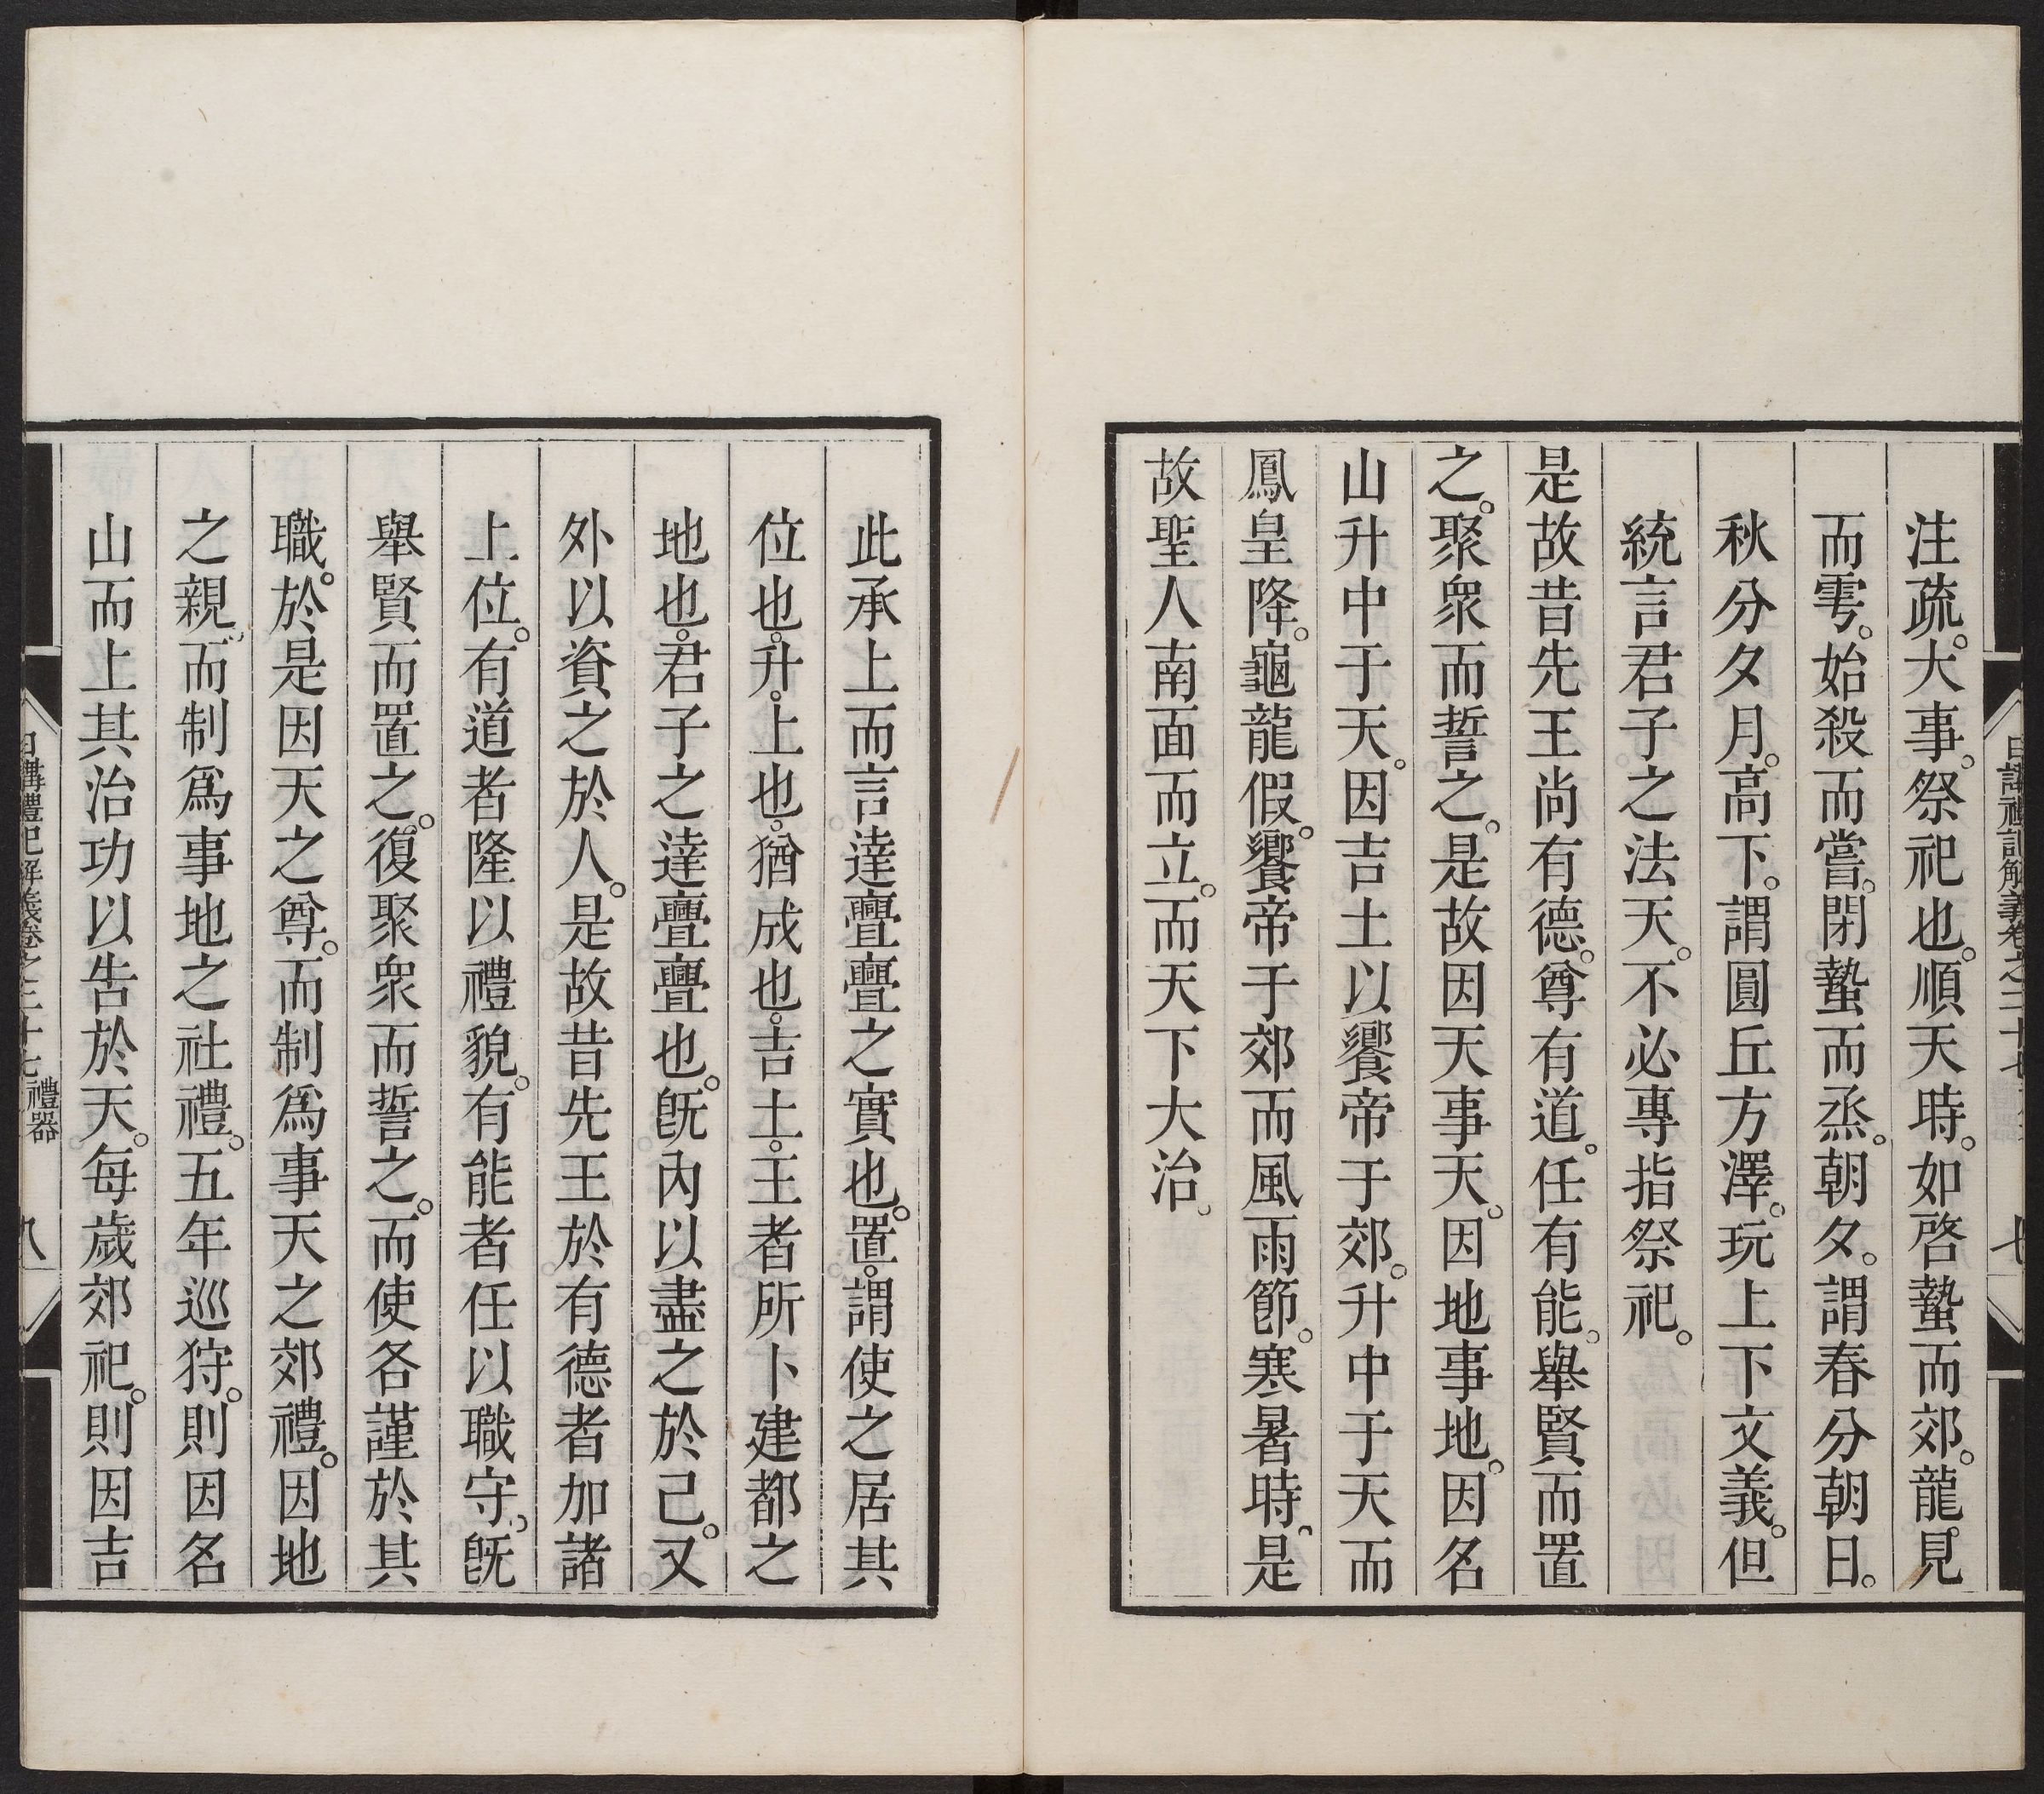 注疏。大事。祭祀也。順天時。如啓蟄而郊。龍見
而雩。始殺而嘗。閉蟄而烝。朝夕。謂春分朝日。
秋分夕月。高下。謂圓丘方澤。玩上下文義。但
統言君子之法天。不必專指祭祀。
是故昔先王尚有德。尊有道。任有能。舉賢而置
之。聚眾而誓之。是故因天事天。因地事地。因名
山升中于天。因吉土以饗帝于郊。升中于天而
鳳皇降。龜龍假。饗帝于郊而風雨節。寒暑時。是
故聖人南面而立。而天下大治。
日講禮記解義卷之二十七
七
此承上而言達亹亹之實也。置。謂使之居其
位也。升。上也。猶成也。吉土。王者所卜建都之
地也。君子之達亹亹也。旣內以盡之於己。又
外以資之於人。是故昔先王於有德者加諸
上位。有道者隆以禮貌。有能者任以職守。旣
舉賢而置之。復聚眾而誓之。而使各謹於其
職。於是因天之尊。而制爲事天之郊禮。因地
之親。而制爲事地之社禮。五年巡狩。則因名
山而上其治功以告於天。每歲郊祀。則因吉
日講禮記解義卷之二十七 禮器
八